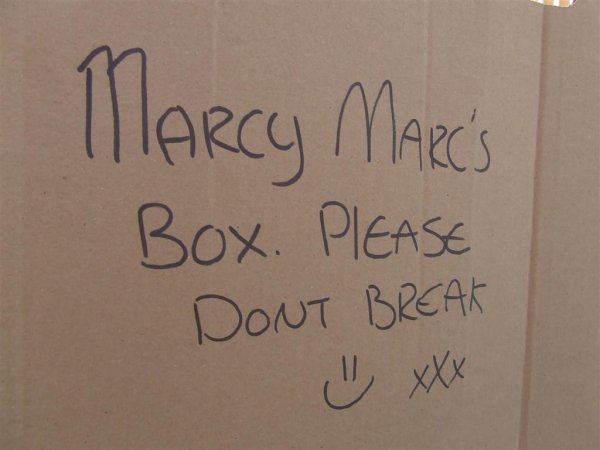 MARCY MARC'S
BOX. PlEASE
DONT BREAK
xxx